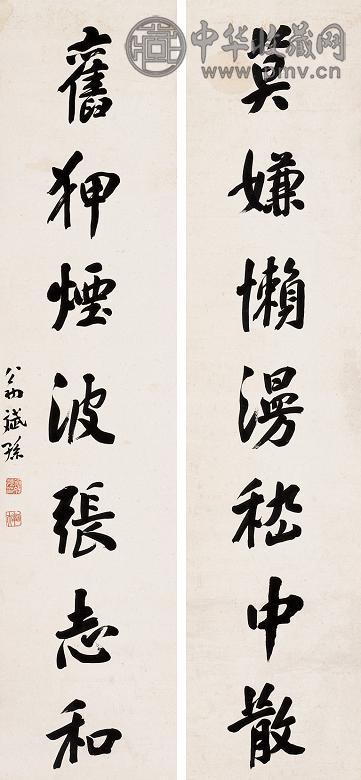 中华收藏网
www.pmv.cn
莫嫌懶漫嵇中散
舊狎煙波張志和
翁斌孫